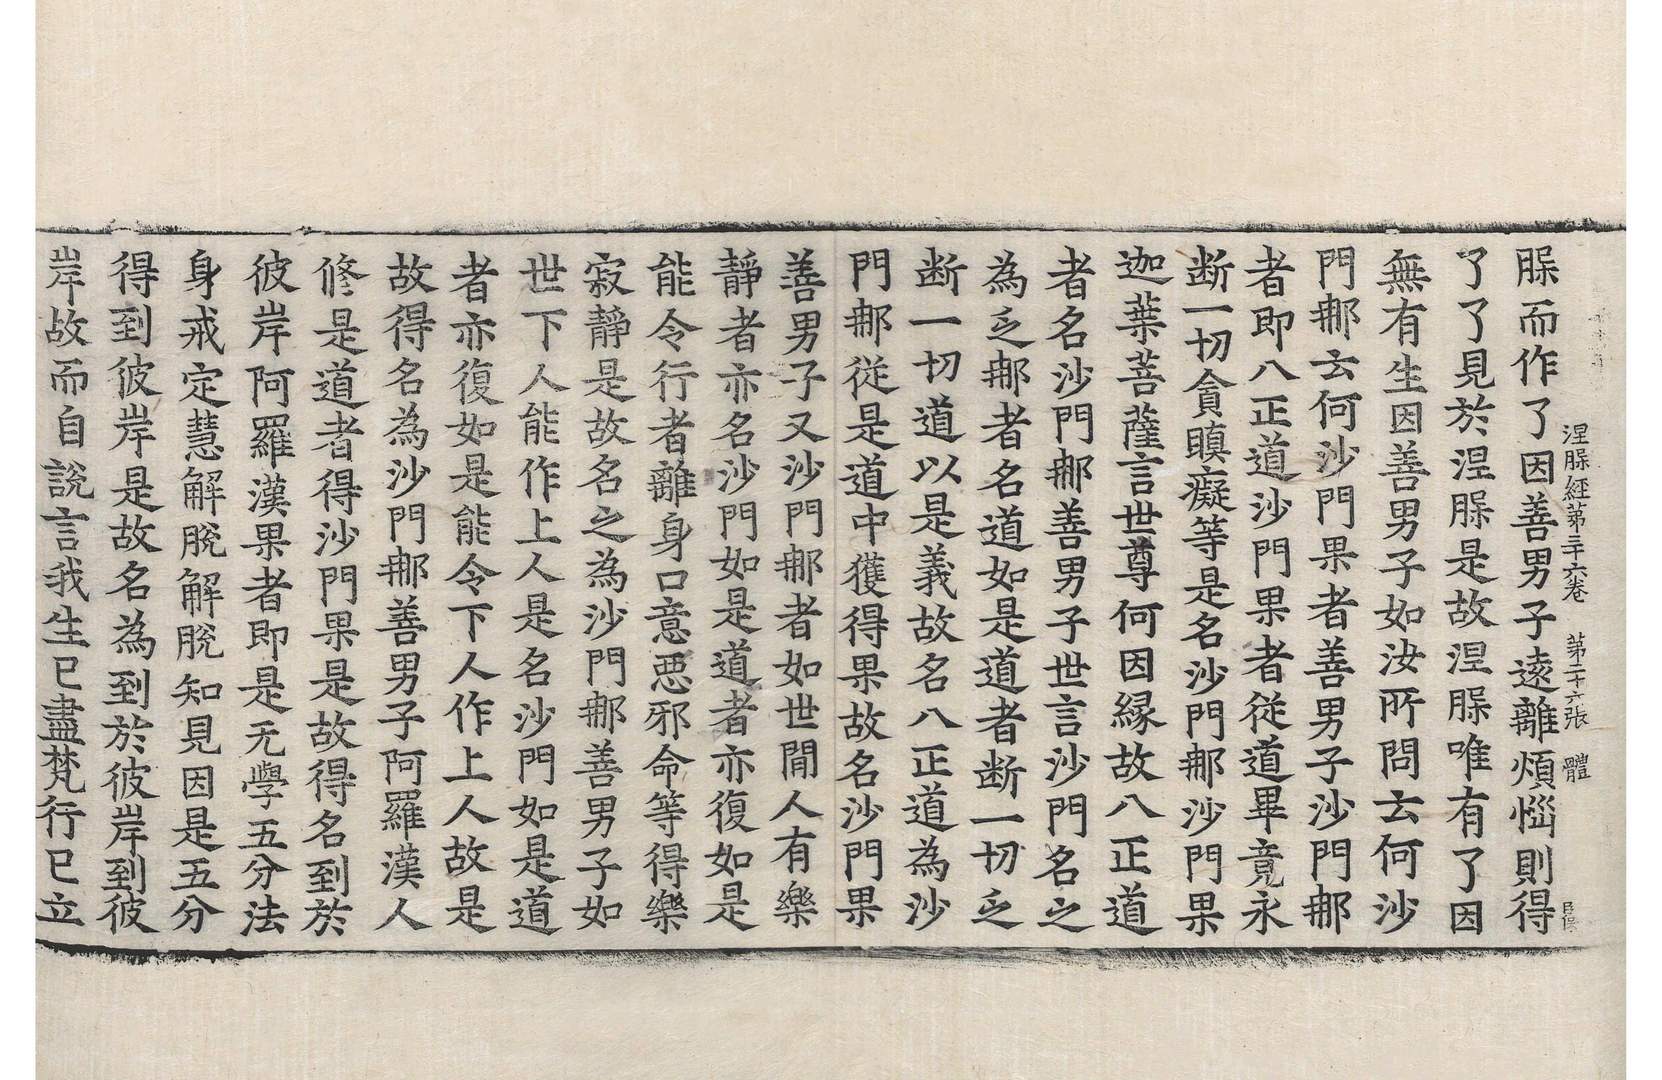 涅槃經第三十六卷　第二十六張　體
槃而作了因善男子遠離煩惱則得
了了見於涅槃是故涅槃唯有了因
無有生因善男子如汝所問云何沙
門𨚗云何沙門果者善男子沙門𨚗
者即八正道沙門果者從道畢竟永
断一切貪瞋癡等是名沙門𨚗沙門果
迦葉菩薩言世尊何因縁故八正道
者名沙門𨚗善男子世言沙門名之
為乏𨚗者名道如是道者断一切乏
断一切道以是義故名八正道為沙
門𨚗従是道中獲得果故名沙門果
善男子又沙門𨚗者如世間人有樂
靜者亦名沙門如是道者亦復如是
能令行者離身口意惡邪命等得樂
寂靜是故名之為沙門𨚗善男子如
世下人能作上人是名沙門如是道
者亦復如是能令下人作上人故是
故得名為沙門𨚗善男子阿羅漢人
修是道者得沙門果是故得名到於
彼岸阿羅漢果者即是无學五分法
身戒定慧解脫解脫知見因是五分
得到彼岸是故名為到於彼岸到彼
岸故而自說言我生已盡梵行已立